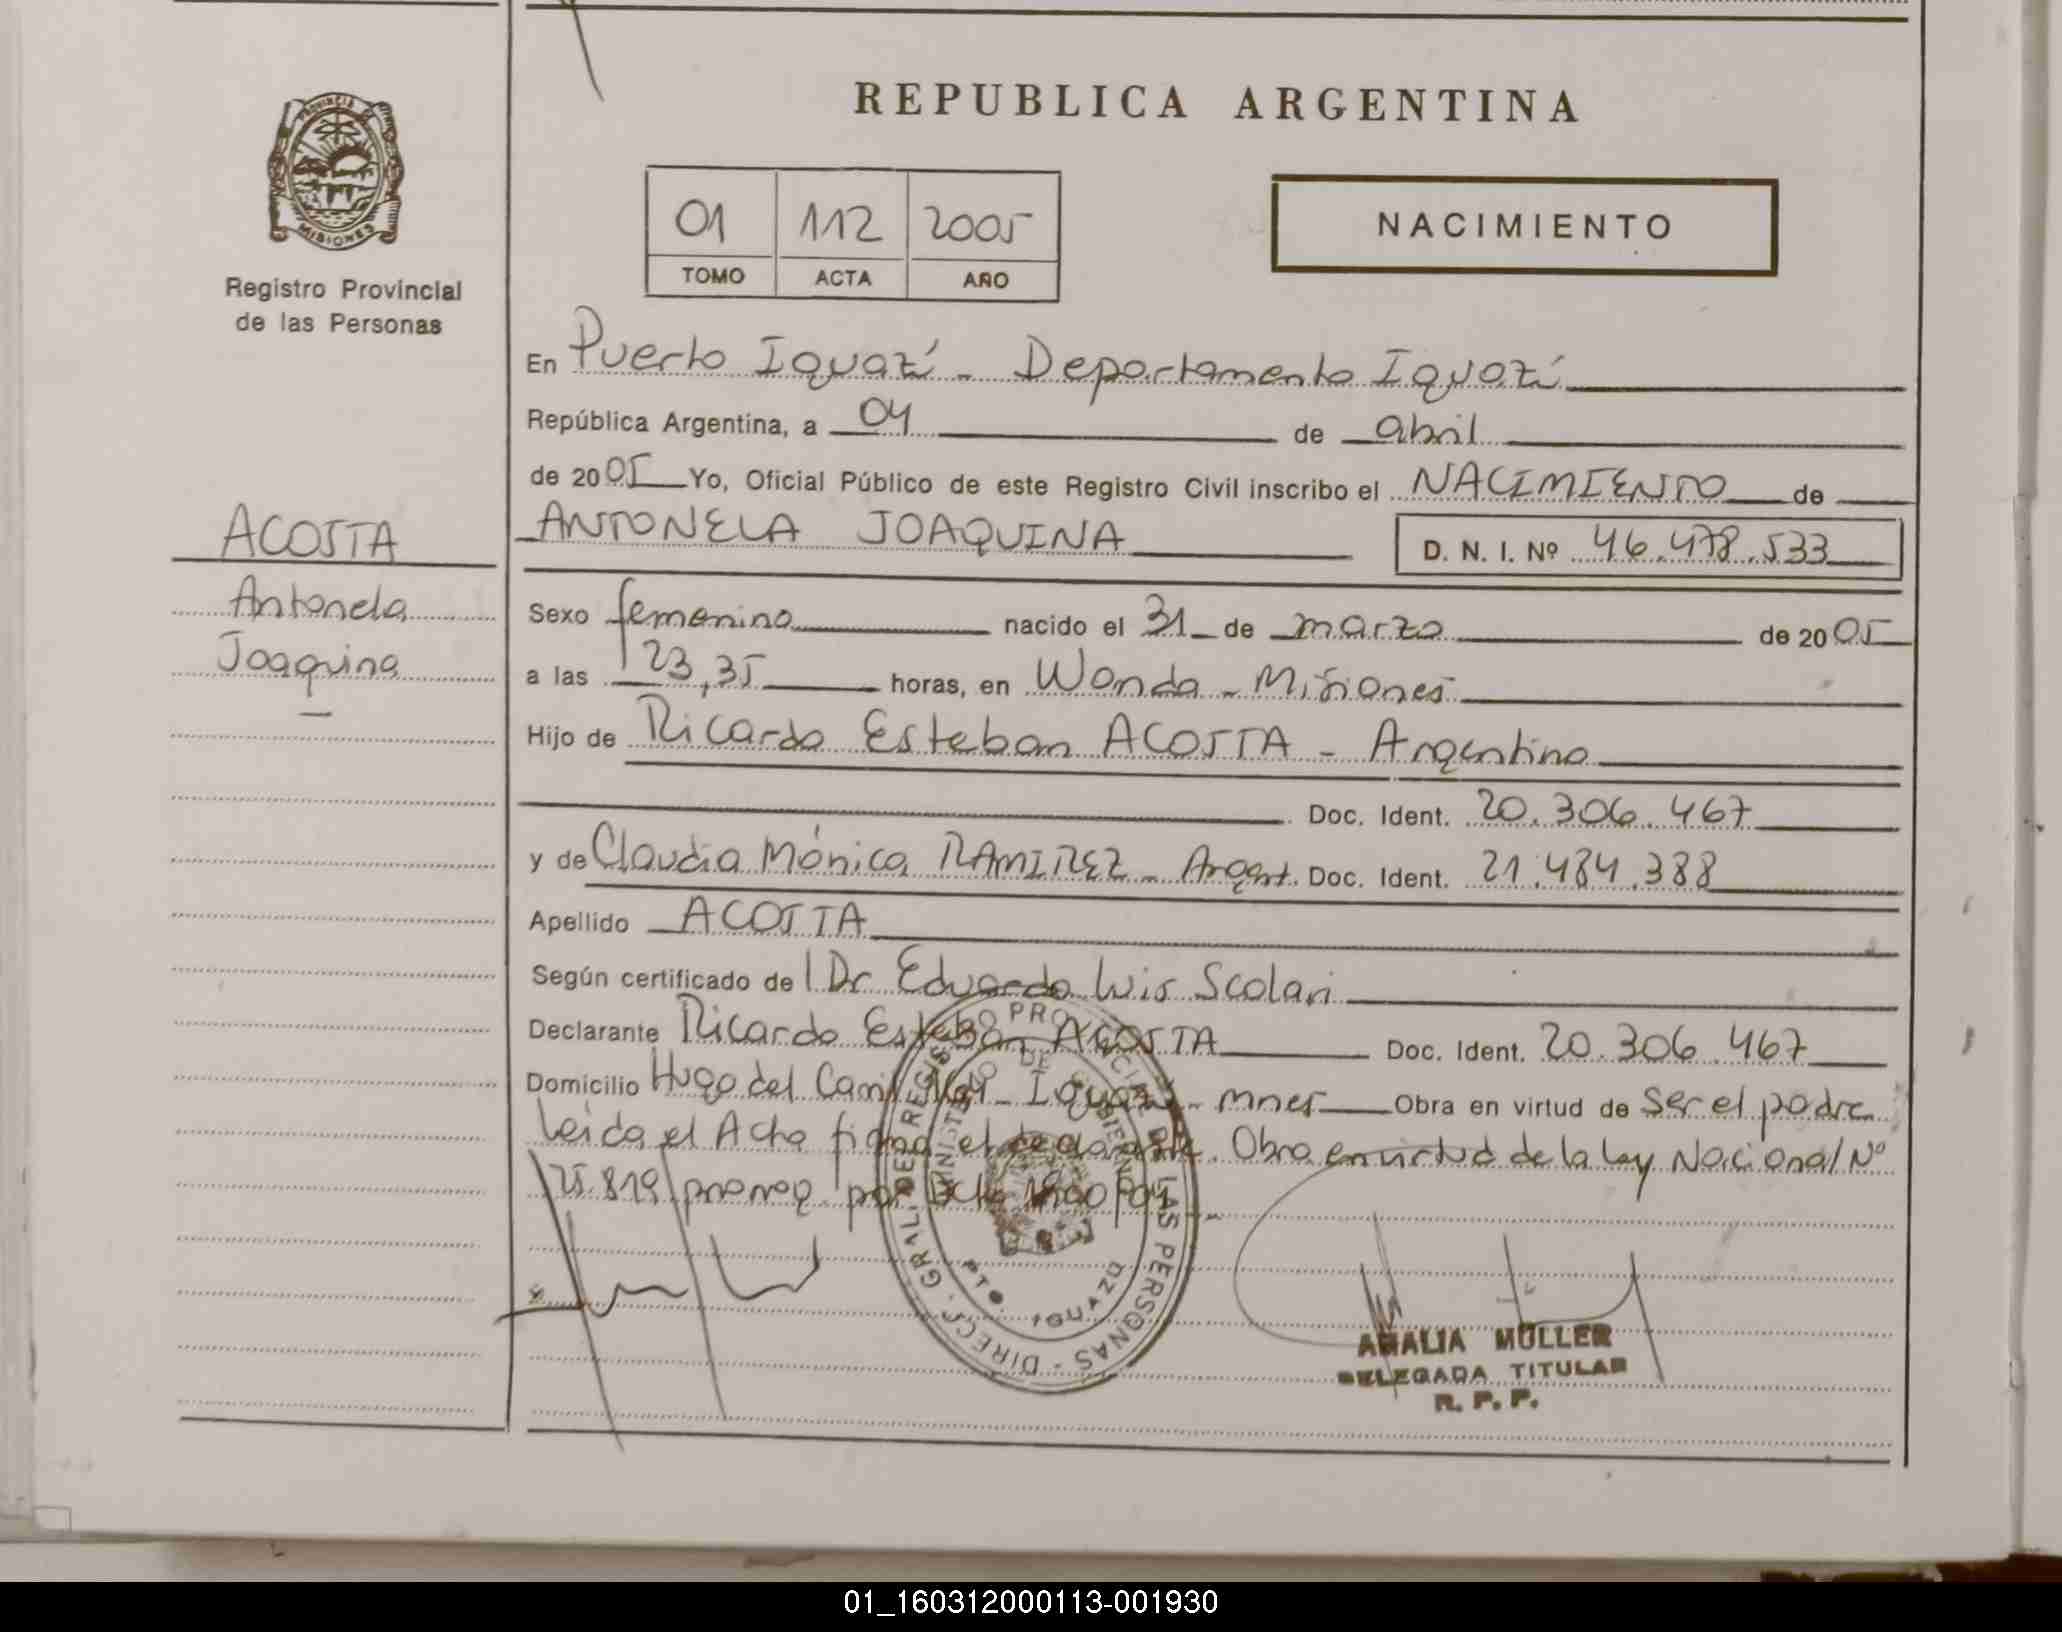 REPUBLICA ARGENTINA
PROVINCIA DE MISIONES
Registro Provincial
de las Personas
01 112 2005
TOMO ACTA AÑO
NACIMIENTO
En Puerto Iguazú - Departamento Iguazú
República Argentina, a 04 de abril
de 2005 Yo, Oficial Público de este Registro Civil inscribo el NACIMIENTO de
ACOSTA
ANTONELA JOAQUINA D. N. I. Nº 46.478.533
Antonela
Joaquina
Sexo femenino nacido el 31 de marzo de 2005
a las 23,35 horas, en Wanda - Misiones
Hijo de Ricardo Esteban ACOSTA - Argentino
Doc. Ident. 20.306.467
y de Claudia Mónica RAMIREZ - Argent. Doc. Ident. 21.484.388
Apellido ACOSTA
Según certificado de l Dr Eduardo Luis Scolari
Declarante Ricardo Esteban ACOSTA Doc. Ident. 20.306.467
Domicilio Hugo del Carril - Iguazú - Mnes Obra en virtud de ser el padre
Leida el Acta firma el declarante. Obra en virtud de la ley Nacional Nº
25.819 prorrog. por
DIREC. GRAL. DEL REGISTRO PROVINCIAL DE LAS PERSONAS
MINISTERIO DE GOBIERNO
PTO. IGUAZU
AMALIA MÜLLER
DELEGADA TITULAR
R. P. P.
01_160312000113-001930